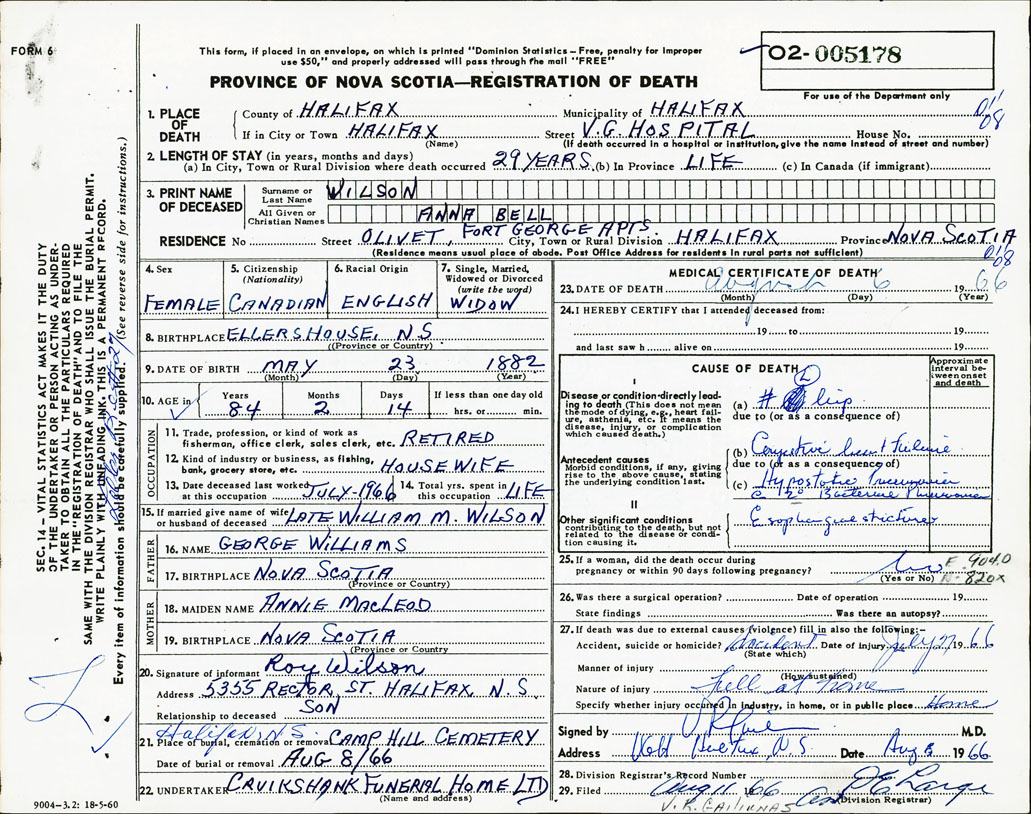 FORM 6
This form, if placed in an envelope, on which is printed "Dominion Statistics – Free, penalty for improper
use $50," and properly addressed will pass through the mail "FREE"
PROVINCE OF NOVA SCOTIA—REGISTRATION OF DEATH
02-005178
For use of the Department only
1. PLACE OF DEATH
County of HALIFAX Municipality of HALIFAX
011 08
If in City or Town HALIFAX Street V.G. HOSPITAL House No.
(Name) (If death occurred in a hospital or institution, give the name instead of street and number)
2. LENGTH OF STAY (in years, months and days)
(a) In City, Town or Rural Division where death occurred 29 YEARS (b) In Province LIFE (c) In Canada (if immigrant)
3. PRINT NAME OF DECEASED
Surname or Last Name WILSON
All Given or Christian Names ANNA BELL
RESIDENCE No Street OLIVET, FORT GEORGE APTS. City, Town or Rural Division HALIFAX Province NOVA SCOTIA
(Residence means usual place of abode. Post Office Address for residents in rural parts not sufficient)
011 08
4. Sex FEMALE
5. Citizenship (Nationality) CANADIAN
6. Racial Origin ENGLISH
7. Single, Married, Widowed or Divorced (write the word) WIDOW
8. BIRTHPLACE ELLERSHOUSE, N S
((Province or Country)
9. DATE OF BIRTH MAY 23 1882
(Month) (Day) (Year)
10. AGE in Years 84 Months 2 Days 14 If less than one day old hrs. or min.
OCCUPATION
11. Trade, profession, or kind of work as
fisherman, office clerk, sales clerk, etc. RETIRED
12. Kind of industry or business, as fishing,
bank, grocery store, etc. HOUSEWIFE
13. Date deceased last worked at this occupation JULY-1966 14. Total yrs. spent in this occupation LIFE
15. If married give name of wife or husband of deceased LATE WILLIAM M. WILSON
FATHER
16. NAME GEORGE WILLIAMS
17. BIRTHPLACE NOVA SCOTIA
(Province or Country)
MOTHER
18. MAIDEN NAME ANNIE MACLEOD
19. BIRTHPLACE NOVA SCOTIA
(Province or Country
20. Signature of informant Roy Wilson
Address 5355 RECTOR, ST. HALIFAX, N.S
Relationship to deceased SON
Halifax, N.S.
21. Place of burial, cremation or removal CAMP HILL CEMETERY
Date of burial or removal AUG 8/66
22. UNDERTAKER CRUIKSHANK FUNERAL HOME LTD
(Name and address)
9004-3.2: 18-5-60
MEDICAL CERTIFICATE OF DEATH
23. DATE OF DEATH August 6 1966
(Month) (Day) (Year)
24. I HEREBY CERTIFY that I attended deceased from:
19 to 19
and last saw h alive on 19
CAUSE OF DEATH
Approximate interval between onset and death
I
Disease or condition directly leading to death (This does not mean the mode of dying, e.g., heart failure, asthenia, etc. It means the disease, injury, or complication which caused death.)
(a) # L hip
due to (or as a consequence of)
Antecedent causes
Morbid conditions, if any, giving rise to the above cause, stating the underlying condition last.
(b) Congestive heart failure
due to (or as a consequence of)
(c) Hypostatic Pneumonia
c 2° Bacterial Pneumonia
II
Other significant conditions
contributing to the death, but not related to the disease or condition causing it.
Esophageal stricture
25. If a woman, did the death occur during
pregnancy or within 90 days following pregnancy? No
(Yes or No)
E. 904.0
N. 820X
26. Was there a surgical operation? Date of operation 19
State findings Was there an autopsy?
27. If death was due to external causes (violence) fill in also the following:–
Accident, suicide or homicide? Accident Date of injury July 27 1966
(State which)
Manner of injury
(How sustained)
Nature of injury fell at home
Specify whether injury occurred in industry, in home, or in public place Home
Signed by M.D.
Address Halifax, N.S. Date Aug 8 1966
28. Division Registrar's Record Number
29. Filed Aug 11 1966
(Division Registrar)
SEC. 14 – VITAL STATISTICS ACT MAKES IT THE DUTY
OF THE UNDERTAKER OR PERSON ACTING AS UNDER-
TAKER TO OBTAIN ALL THE PARTICULARS REQUIRED
IN THE "REGISTRATION OF DEATH" AND TO FILE THE
SAME WITH THE DIVISION REGISTRAR WHO SHALL ISSUE THE BURIAL PERMIT.
WRITE PLAINLY WITH UNFADING INK. THIS IS A PERMANENT RECORD.
Every item of information should be carefully supplied. (See reverse side for instructions.)